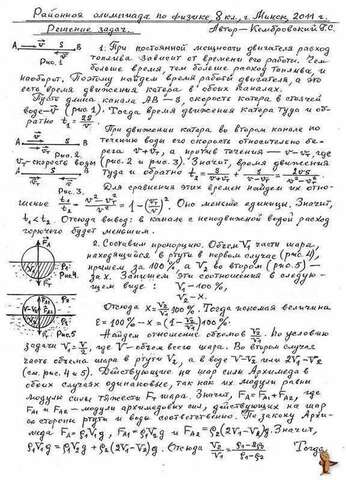 Районная олимпиада по физике, 8 кл., г. Минск, 2011 г.
Решение задач. Автор – Кембровский Г.С.
A S B
Рис. 1
1. При постоянной мощности двигателя расход
топлива зависит от времени его работы. Чем
больше время, тем больше расход топлива, и
наоборот. Поэтому найдем время работы двигателя, а это
есть время движения катера в обоих каналах.
Пусть длина канала AB – S, скорость катера в стоячей
воде – v (рис. 1). Тогда время движения катера туда и об-
ратно t₁ = 2S/v.
При движении катера во втором канале по
течению воды его скорость относительно бе-
рега v + vт, а против течения – v – vт, где
vт – скорость воды (рис. 2 и рис. 3). Значит, время движения
туда и обратно t₂ = S/(v+vт) + S/(v–vт) = 2vS/(v²–vт²).
Рис. 2
Рис. 3
Для сравнения этих времен найдем их отно-
шение t₁/t₂ = (v²–vт²)/v² = 1 – (vт/v)². Оно меньше единицы. Значит,
t₁ < t₂. Отсюда вывод: в канале с неподвижной водой расход
горючего будет меньшим.
2. Составим пропорцию. Объем V₁ части шара,
находящийся в ртути в первом случае (рис. 4),
примем за 100%, а V₂ во втором (рис. 5) –
за x. Запишем эти соотношения в следую-
щем виде: V₁ – 100%,
V₂ – x.
Рис. 4
Отсюда x = V₂/V₁ 100%. Тогда искомая величина
ε = 100% – x = (1 – V₂/V₁) 100%.
Рис. 5
Найдем отношение объемов V₂/V₁. По условию
задачи V₁ = V/2, где V – объем всего шара. Во втором случае
часть объема шара в ртути V₂, а в воде V–V₂ или 2V₁–V₂
(см. рис. 4 и 5). Действующие на шар силы Архимеда в
обоих случаях одинаковые, так как их модули равны
модулю силы тяжести Fт шара. Значит, FA = FA1 + FA2, где
FA1 и FA2 – модули архимедовых сил, действующих на шар
со стороны ртути и воды соответственно. По закону Архи-
меда FA = ρ₁V₁g, FA1 = ρ₁V₂g и FA2 = ρ₂(2V₁–V₂)g. Значит,
ρ₁V₁g = ρ₁V₂g + ρ₂(2V₁–V₂)g. Отсюда V₂/V₁ = (ρ₁–2ρ₂)/(ρ₁–ρ₂). Тогда